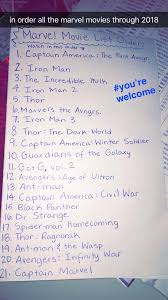 in order all the marvel movies through 2018
Marvel Movie List Older
Watch in this order
1. Captain America: The First Aveng.
2. Iron Man
3. The Incredible Hulk
4. Iron Man 2
5. Thor
6. Marvel's the Avengers
7. Iron Man 3
8. Thor: The Dark World
9. Captain America: Winter Soldier
10. Guardians of the Galaxy
11. GofG, vol. 2
12. Avengers: Age of Ultron
13. Ant-man
14. Captain America: Civil War
15. Black Panther
16. Dr. Strange
17. Spider-man Homecoming
18. Thor: Ragnarok
19. Ant-man & the Wasp
20. Avengers: Infinity War
21. Captain Marvel
#you're
welcome